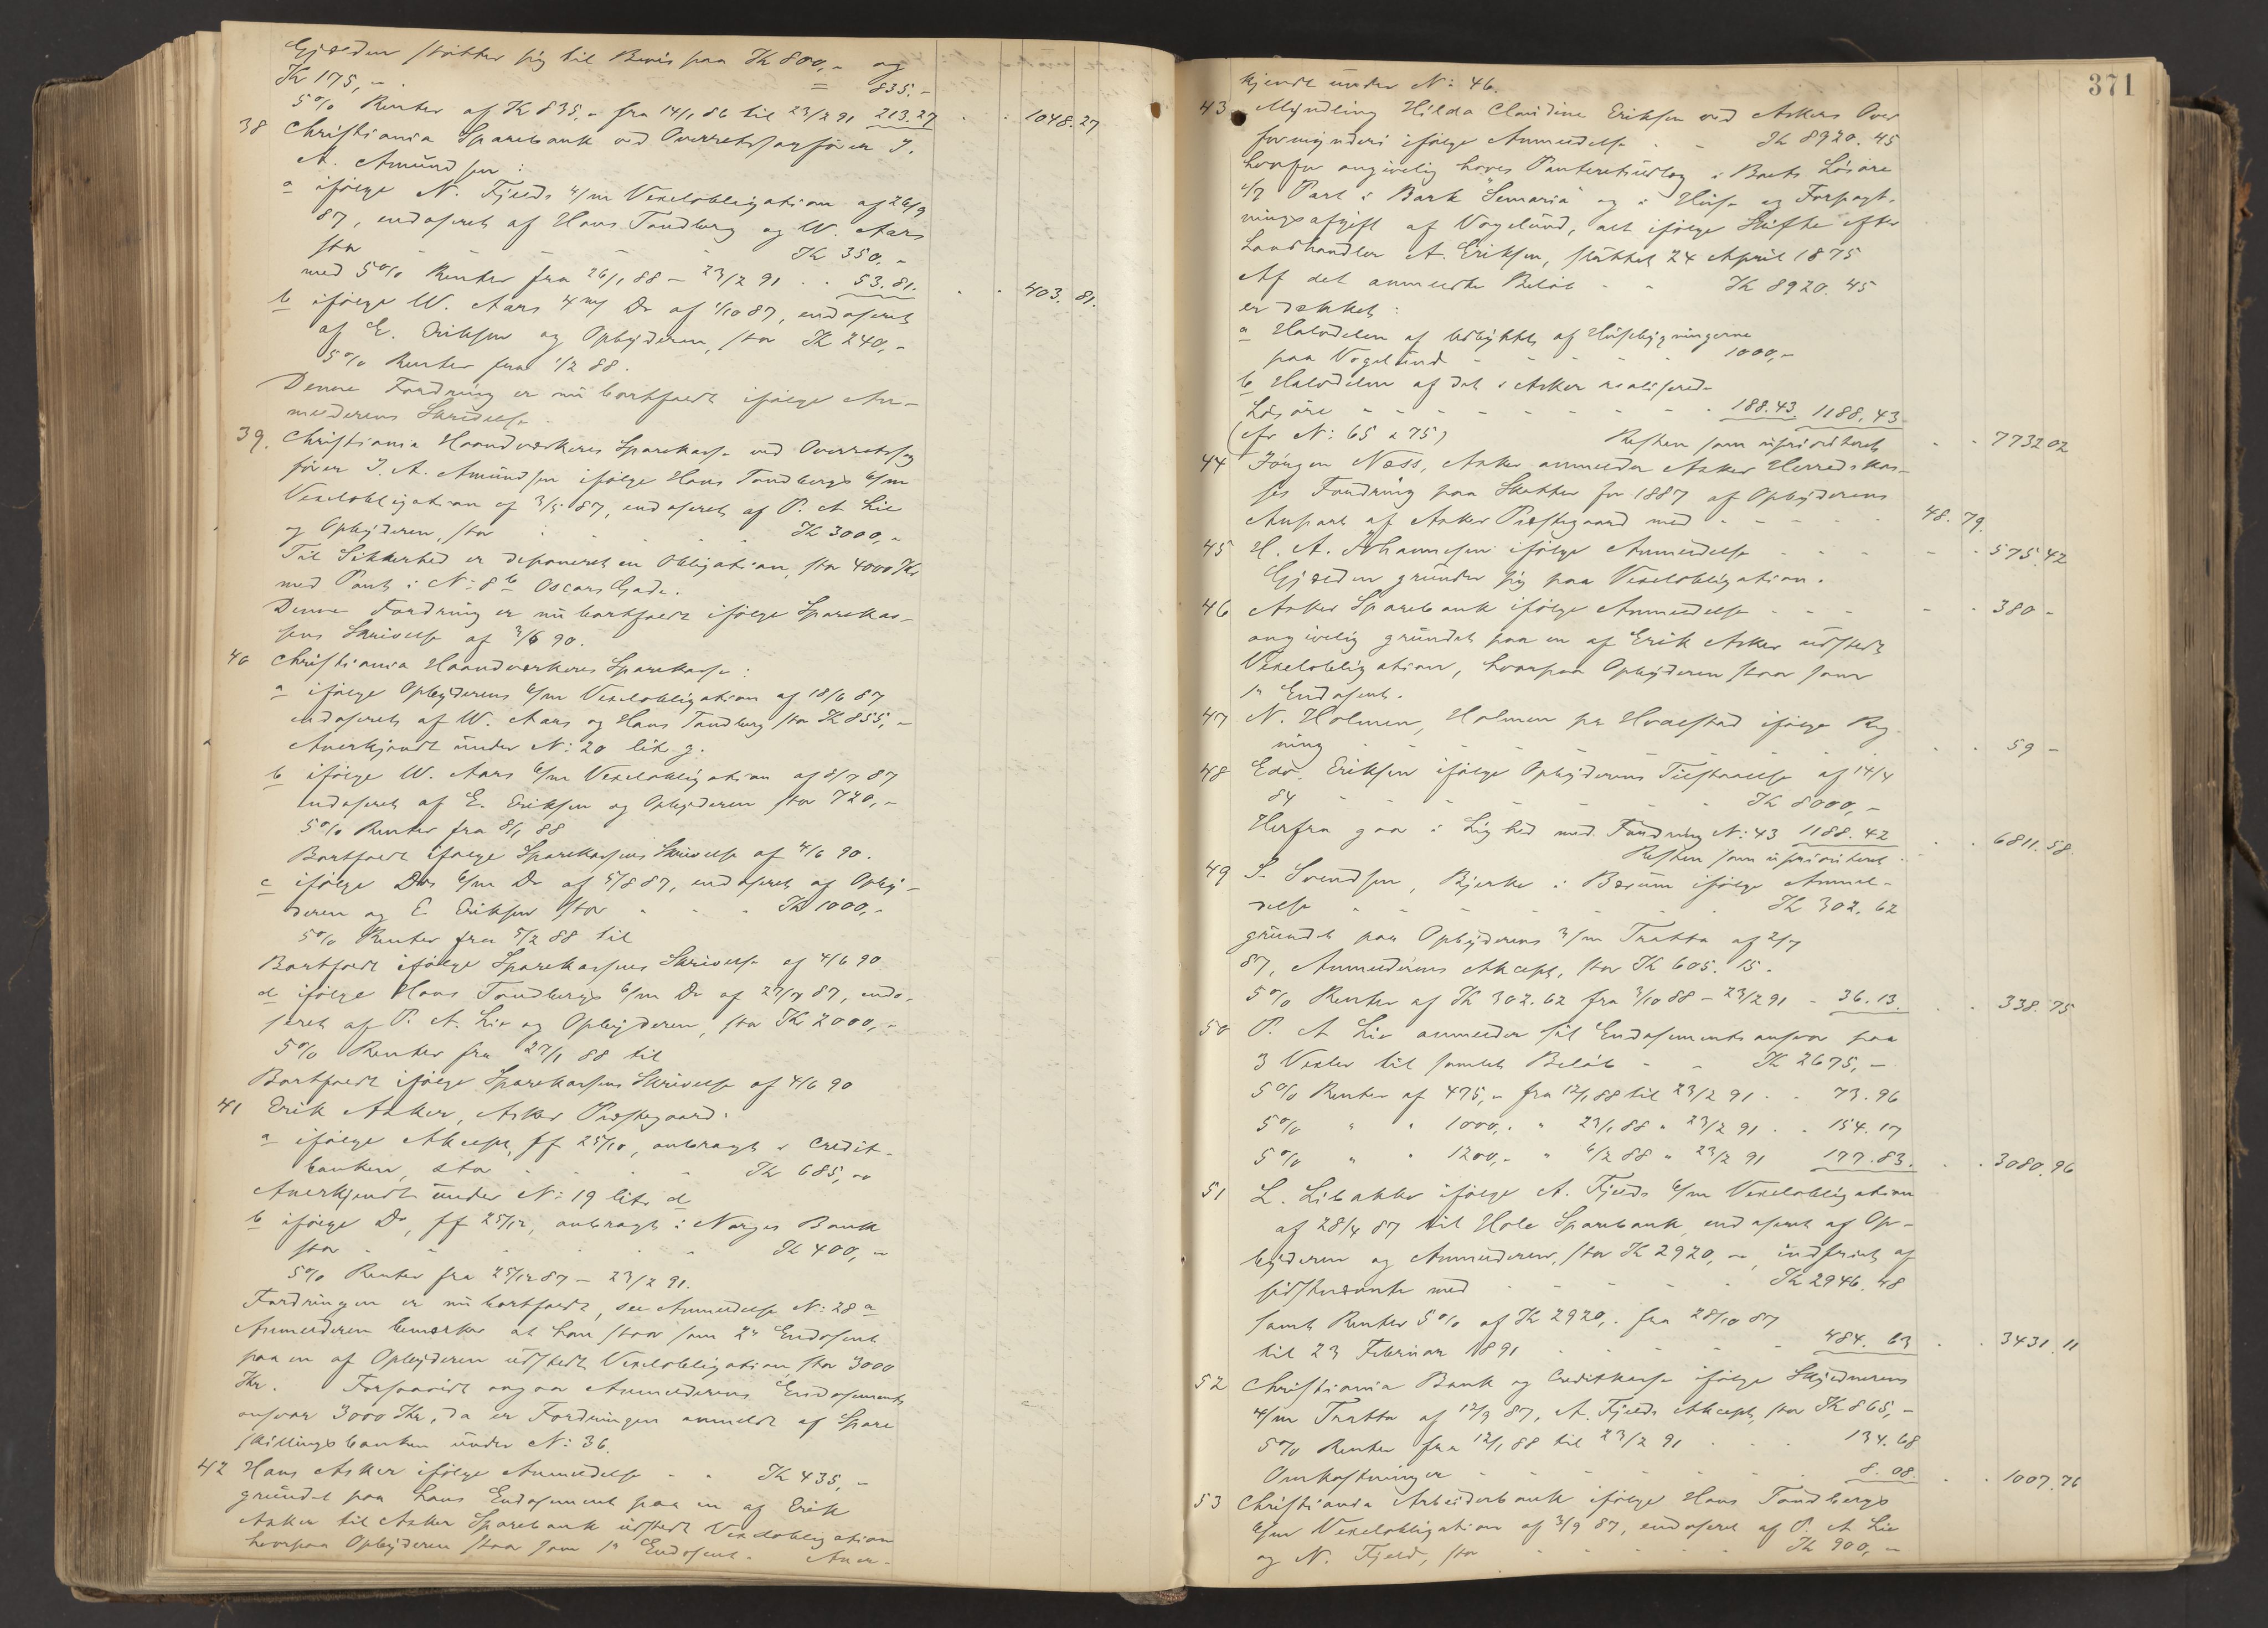 Gjælden støtter sig til Bevis paa Kr 800,- og
Kr 175,- = 835.-
5% Renter af Kr 835,- fra 14/1 86 til 23/2 91 213.27 1048.27
38 Christiania Sparebank ved Overretssagfører J.
A. Amundsen:
a ifølge N. Fjelds 4/m Vexelobligation af 26/9
87, endoseret af Hans Tandberg og W. Aars
stor Kr 350,-
med 5% Renter fra 26/1 88 - 23/2 91 53.81. 403.81.
b ifølge W. Aars 4/m Do af 1/10 87, endoseret
af E. Eriksen og Opbyderen, stor Kr 240,-
5% Renter fra 1/2 88.
Denne Fordring er nu bortfaldt ifølge An-
melderens Skrivelse.
39. Christiania Haandværkeres Sparekasse ved Overretssag
fører J. A. Amundsen ifølge Hans Tandbergs 6/m
Vexelobligation af 3/5 87, endoseret af P. A Lie
og Opbyderen, stor Kr 3000,-
Til Sikkerhed er deponeret en Obligation, stor 4000 Kr
med Pant i No 8 b Oscars Gade.
Denne Fordring er nu bortfaldt ifølge Sparekas-
sens Skrivelse af 3/6 90.
40 Christiania Haandværkeres Sparekasse:
a ifølge Opbyderens 6/m Vexelobligation af 18/6 87
endoseret af W. Aars og Hans Tandberg stor Kr 855,-
Anerkjendt under No 20 litr g.
b ifølge W. Aars 6/m Vexelobligation af 8/7 87
endoseret af E. Eriksen og Opbyderen stor 720,-
5% Renter fra 8/1 88
Bortfaldt ifølge Sparekassens Skrivelse af 4/6 90.
c ifølge Ds 6/m Do af 5/8 87, endoseret af Opby-
deren og E. Eriksen stor Kr 1000,-
5% Renter fra 5/2 88 til
Bortfaldt ifølge Sparekassens Skrivelse af 4/6 90
d ifølge Hans Tandbergs 6/m Do af 27/7 87, endo-
seret af P. A. Lie og Opbyderen, stor Kr 2000,-
5% Renter fra 27/1 88 til
Bortfaldt ifølge Sparekassens Skrivelse af 4/6 90
41 Erik Asker, Asker Præstegaard:
a ifølge Akcept, ff 25/10, anbragt i Credit-
banken, stor Kr 685,-
Anerkjendt under No 19 litr d
b ifølge Do, ff 25/12, anbragt i Norges Bank
stor Kr 400,-
5% Renter fra 25/12 87 - 23/2 91.
Fordringen er nu bortfaldt, see Anmeldelse No 28 a
Anmelderen bemærker at han staar som 2n Endosent
paa en af Opbyderen udstedt Vexelobligation, stor 3000
Kr. Forsaavidt angaar Anmelderens Endosements
ansvar 3000 Kr, da er Fordringen anmeldt af Spare
skillingsbanken under No 36.
42 Hans Asker ifølge Anmeldelse Kr 435,-
grundet paa hans Endosement paa en af Erik
Asker til Asker Sparebank udstedt Vexelobligation
hvorpaa Opbyderen staar som 1n Endosent. Aner-
371
kjendt under No 46.
43 Myndling Hilda Claudine Eriksen ved Askers Over
formynderi ifølge Anmeldelse Kr 8920.45
hvorfor angivelig haves Panteretsudlæg i Boets Løsøre
1/7 Part i Bark "Semaria" og i Huse og Forpagt-
ningsafgift af Vogelund, alt ifølge Skifte efter
Landhandler A. Eriksen, sluttet 24 April 1875
Af det anmeldte Beløb Kr 8920.45
er dækket:
a Halvdelen af Udbyttet af Husebygningerne
paa Vogelund 1000,-
b Halvdelen af det i Asker realiserede
Løsøre 188.43 1188.43
(cfr No 65 & 75) Resten som uprioriteret 7732 02
44 Jørgen Næss, Asker anmelder Asker Herredskas-
ses Fordring paa Skatter for 1887 af Opbyderens
Anpart af Asker Præstegaard med 48.79.
45 H. A. Johannesen ifølge Anmeldelse 575.42
Gjælden grunder sig paa Vexelobligation.
46 Asker Sparebank ifølge Anmeldelse 380 -
angivelig grundet paa en af Erik Asker udstedt
Vexelobligation, hvorpaa Opbyderen staar som
1n Endosent.
47 N. Holmen, Holmen pr Hvalstad ifølge Reg-
ning 59 -
48 Edv. Eriksen ifølge Opbyderens Tilstaaelse af 14/4
84 Kr 8000,-
Herfra gaar i Lighed med Fordring No 43 1188.42
Resten som uprioriteret 6811.58.
49 S. Svendsen, Bjerke i Bærum ifølge Anmel-
delse Kr 302.62
grundet paa Opbyderens 3/m Tratta af 2/7
87, Anmelderens Akcept, stor Kr 605.15.
5% Renter af Kr 302.62 fra 3/10 88 - 23/2 91 - 36.13. 338.75
50 P. A Lie anmelder sit Endosementsansvar paa
3 Vexler til samlet Beløb Kr 2675,-
5% Renter af 475,- fra 12/1 88 til 23/2 91 73.96
5% " " 1000,- " 23/1 88 " 23/2 91 154.17
5% " " 1200,- " 6/2 88 " 23/2 91 177.83. 3080.96
51 L. Libakke ifølge A. Fjelds 6/m Vexelobligation
af 28/4 87 til Hole Sparebank, endoseret af Op-
byderen og Anmelderen, stor Kr 2920,-, indfriet af
sidstnævnte med Kr 2946.48
samt Renter 5% af Kr 2920,- fra 28/10 87
til 23 Februar 1891 484.63 3431.11
52 Christiania Bank og Creditkasse ifølge Skyldnerens
4/m Tratta af 12/9 87, A. Fjelds Akcept, stor Kr 865,-
5% Renter fra 12/1 88 til 23/2 91 134.68
Omkostninger 8.08. 1007.76
53 Christiania Arbeiderbank ifølge Hans Tandbergs
6/m Vexelobligation af 3/9 87, endoseret af P. A Lie
og N. Fjeld, stor Kr 900,-